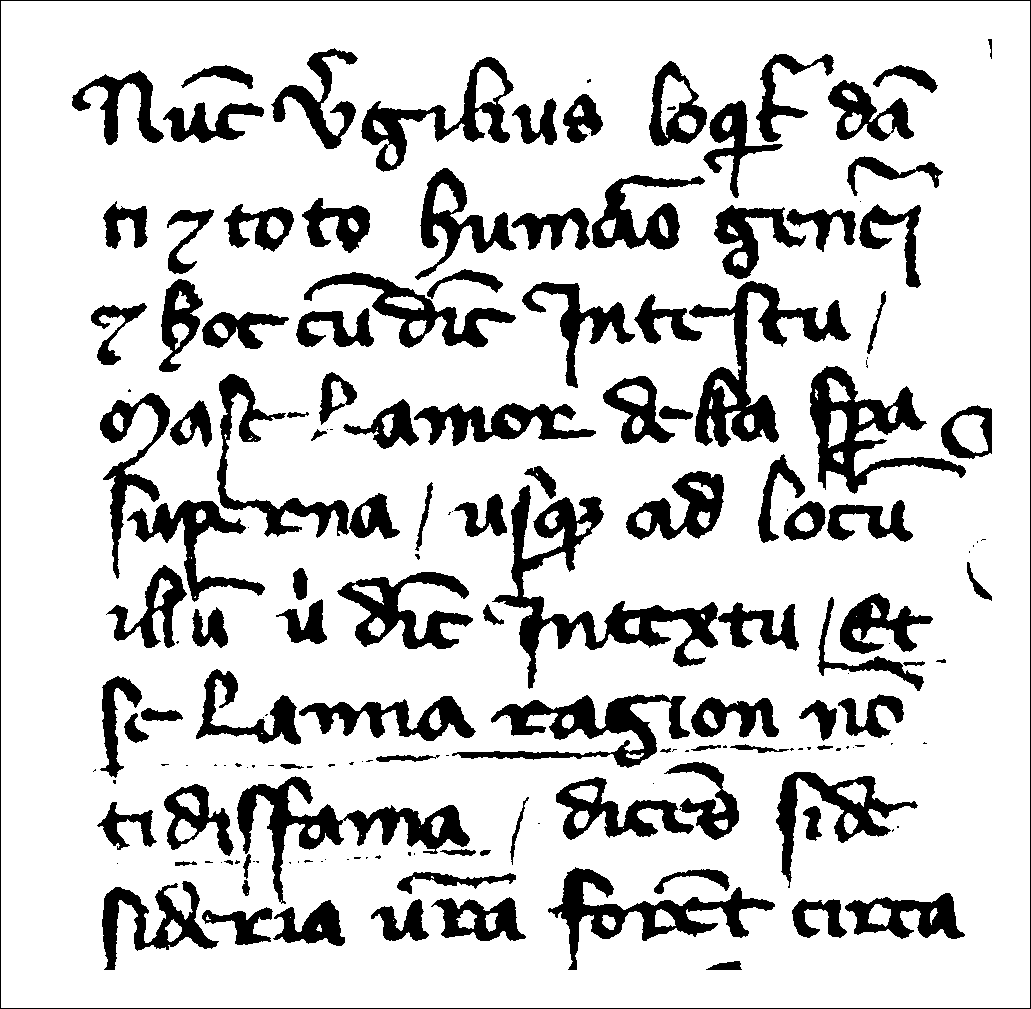 Nuc̄ Vʼgilius loqͥt᷑ dā
ti ⁊ toto humāo gene᷑i
⁊ hoc cū dic̄ In testu /
Ma se lamor de lla sꝑa
superna / usqꝫ ad locū
illū uͥ dic̄ In textu / Et
se la mia ragion nō
ti disfama / dicēs si de
sideria ur̄a forēt circa